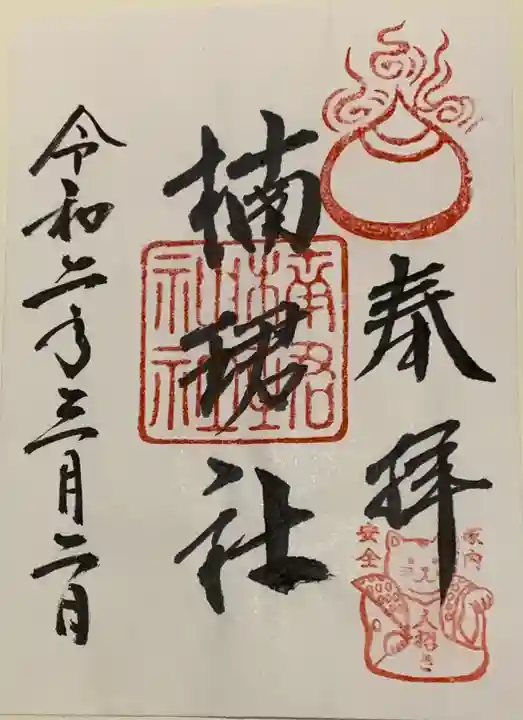 奉拝
家内
安全
人招き
楠珺社
令和六年三月二日